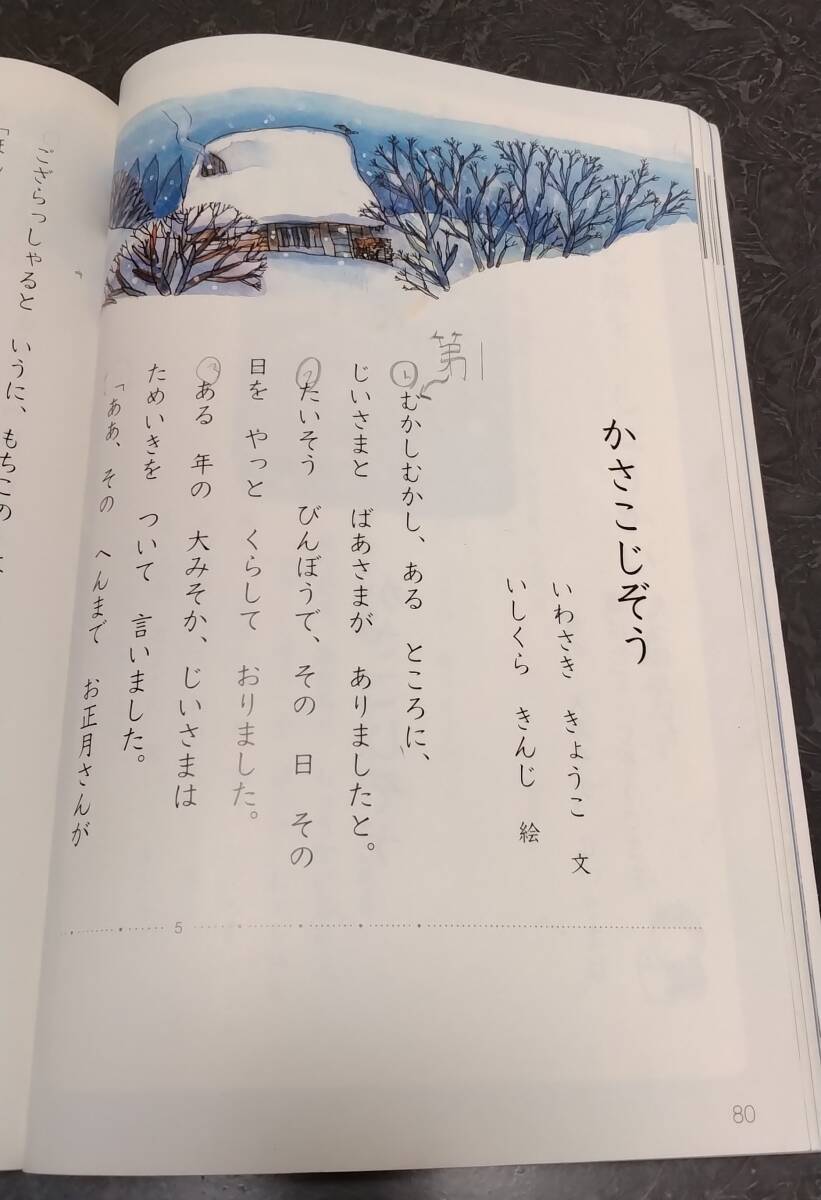 かさこじぞう
いわさき　きょうこ　文
いしくら　きんじ　絵
第1
① むかしむかし、ある　ところに、
じいさまと　ばあさまが　ありましたと。
② たいそう　びんぼうで、その　日　その
日を　やっと　くらして　おりました。
③ ある　年の　大みそか、じいさまは
ためいきを　ついて　言いました。
「ああ、その　へんまで　お正月さんが
5
80
ござらっしゃると　いうに、もちこの